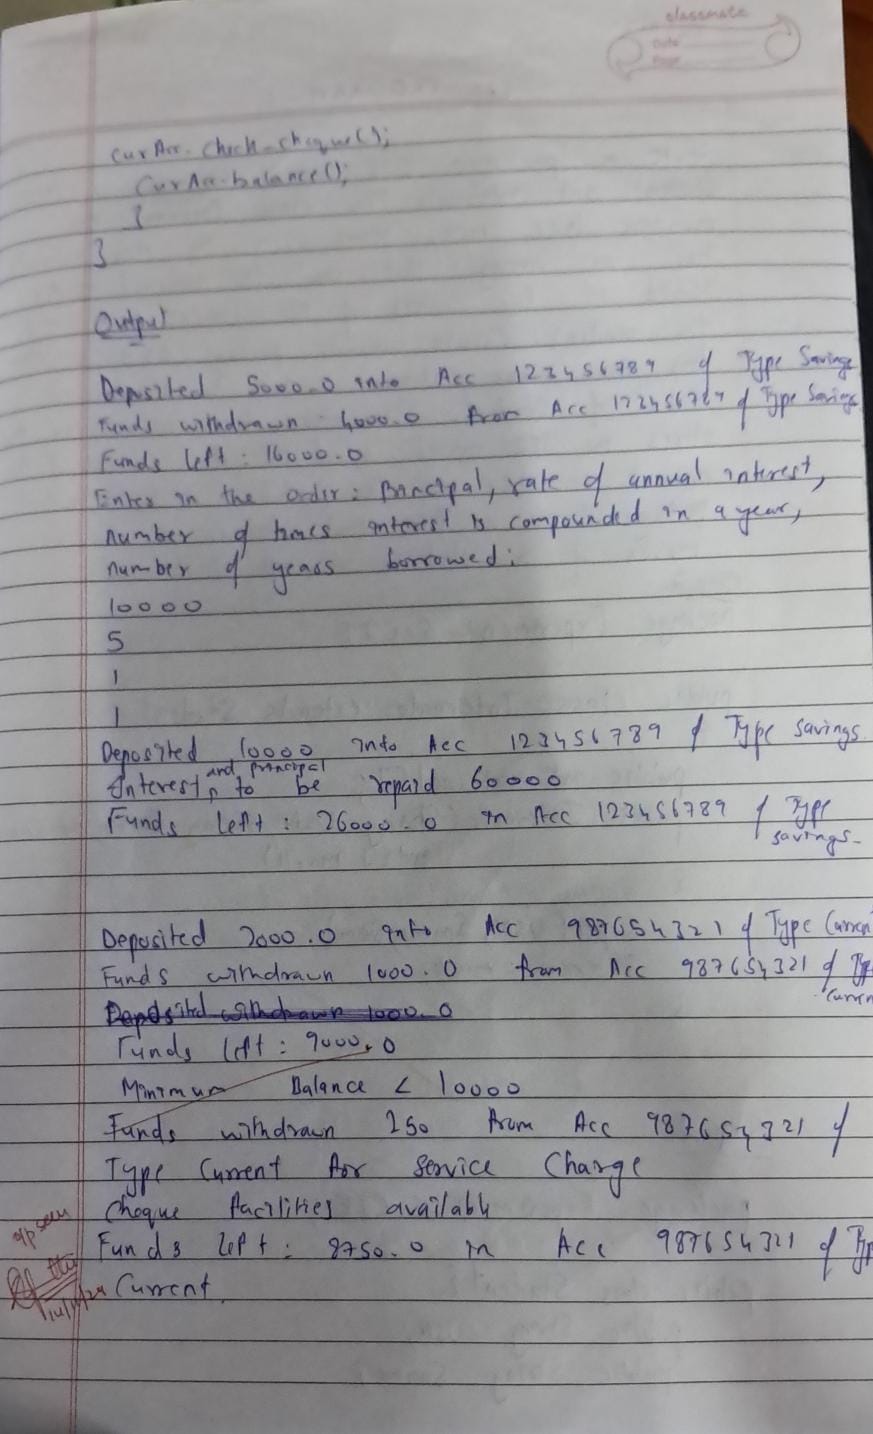 classmate
Date
Page
curAcc.check_cheque();
CurAcc.balance();
}
}
Output
Deposited 5000.0 into Acc 123456789 of Type Savings
Funds withdrawn 4000.0 from Acc 123456789 of Type Savings
Funds left : 16000.0
Enter in the order : Principal, rate of annual interest,
number of times interest is compounded in a year,
number of years borrowed :
10000
5
1
1
Deposited 10000 into Acc 123456789 of Type savings
and principal
Interest, to be repaid 60000
Funds left : 26000.0 in Acc 123456789 of Type
savings.
Deposited 2000.0 into Acc 987654321 of Type Curren
Funds withdrawn 1000.0 from Acc 987654321 of Typ
Curren
withdrawn 1000.0
Funds left : 9000.0
Minimum Balance < 10000
Funds withdrawn 250 from Acc 987654321 of
Type Current for Service Charge
Cheque facilities available
Funds left : 8750.0 in Acc 987654321 of Typ
Current.
o/p seen